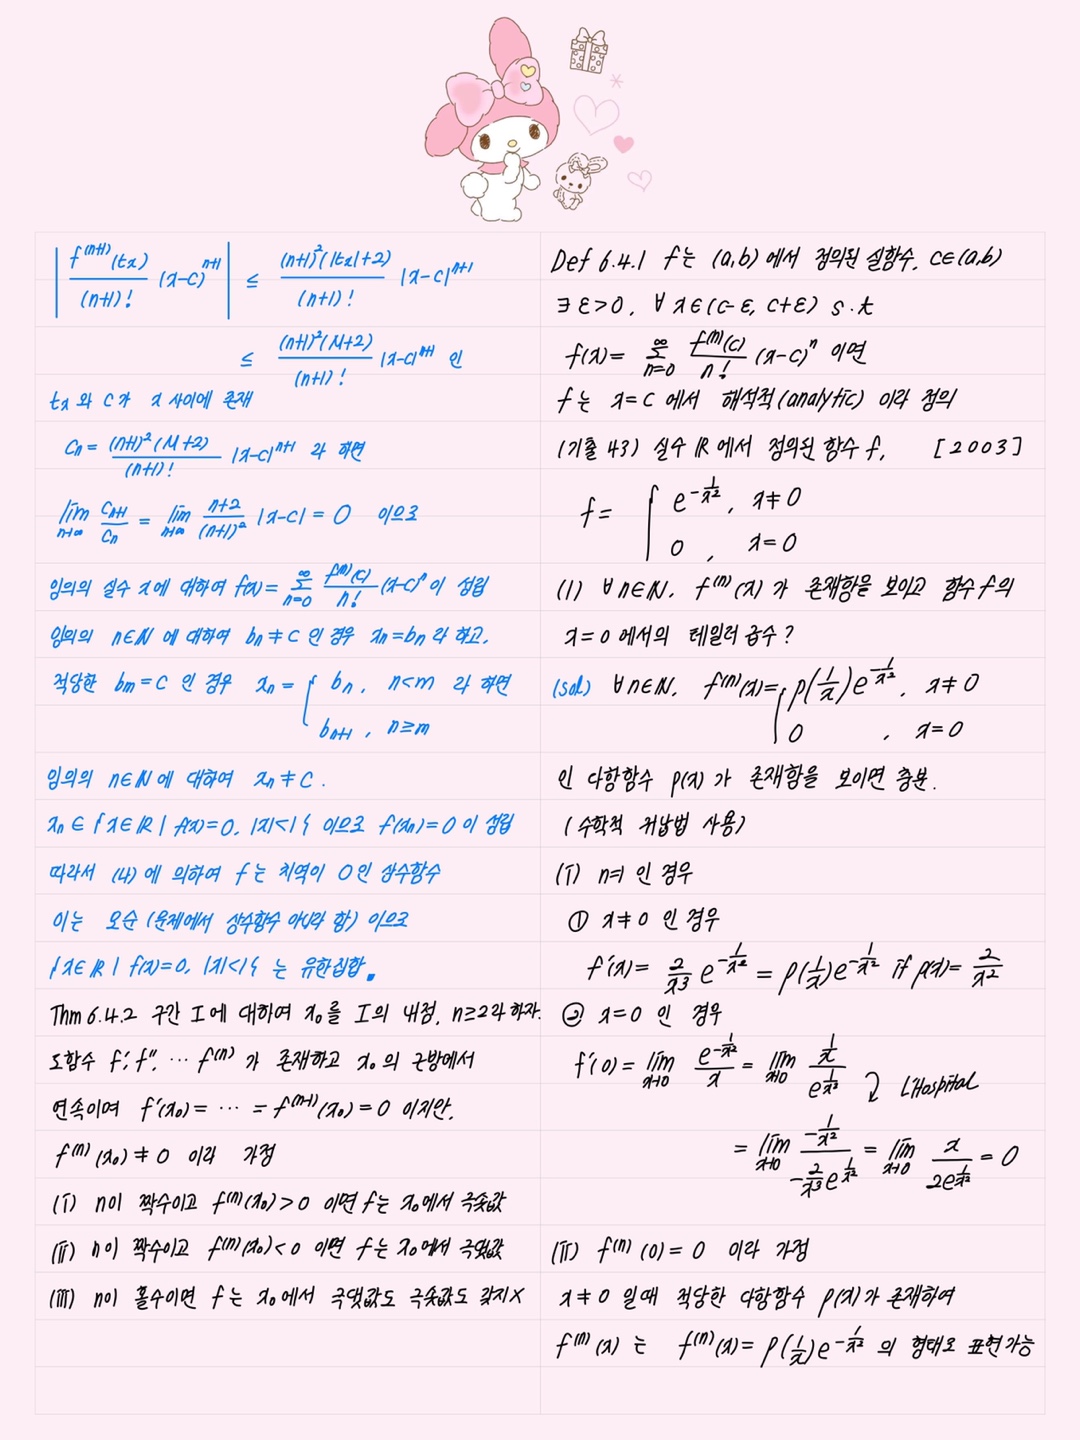 | f^(n+1)(tx) / (n+1)! (x-c)^(n+1) | ≤ (n+1)²(|tx|+2) / (n+1)! |x-c|^(n+1)
≤ (n+1)²(M+2) / (n+1)! |x-c|^(n+1) 인
tx 와 c가 x 사이에 존재
Cn = (n+1)²(M+2) / (n+1)! |x-c|^(n+1) 라 하면
lim n→∞ Cn+1 / Cn = lim n→∞ n+2 / (n+1)² |x-c| = 0 이므로
임의의 실수 x에 대하여 f(x) = ∞ Σ n=0 f^(n)(c) / n! (x-c)^n 이 성립
임의의 n∈N 에 대하여 bn ≠ c 인 경우 xn = bn 라 하고,
적당한 bm = c 인 경우 xn = { bn, n<m 라 하면
bn+1, n≥m
임의의 n∈N 에 대하여 xn ≠ c.
xn ∈ {x∈R | f(x)=0, |x|<1} 이므로 f(xn)=0 이 성립
따라서 (4)에 의하여 f는 치역이 0인 상수함수
이는 모순 (문제에서 상수함수 아니라 함) 이므로
{x∈R | f(x)=0, |x|<1} 는 유한집합.
Thm 6.4.2 구간 I에 대하여 x₀를 I의 내점, n≥2라하자.
도함수 f', f'', ⋯ f^(n) 가 존재하고 x₀의 근방에서
연속이며 f'(x₀) = ⋯ = f^(n-1)(x₀) = 0 이지만,
f^(n)(x₀) ≠ 0 이라 가정
(i) n이 짝수이고 f^(n)(x₀) > 0 이면 f는 x₀에서 극솟값
(ii) n이 짝수이고 f^(n)(x₀) < 0 이면 f는 x₀에서 극댓값
(iii) n이 홀수이면 f는 x₀에서 극댓값도 극솟값도 갖지X
Def 6.4.1 f는 (a,b)에서 정의된 실함수, c∈(a,b)
∃ε>0, ∀x∈(c-ε, c+ε) s.t
f(x) = ∞ Σ n=0 f^(n)(c) / n! (x-c)^n 이면
f는 x=c에서 해석적(analytic) 이라 정의
(기출 43) 실수 R에서 정의된 함수 f, [2003]
f = { e^(-1/x²), x≠0
0, x=0
(1) ∀n∈N, f^(n)(x)가 존재함을 보이고 함수 f의
x=0에서의 테일러 급수?
(sol) ∀n∈N, f^(n)(x) = { p(1/x)e^(-1/x²), x≠0
0, x=0
인 다항함수 p(x)가 존재함을 보이면 충분.
(수학적 귀납법 사용)
(i) n=1인 경우
① x≠0 인 경우
f'(x) = 2/x³ e^(-1/x²) = p(1/x)e^(-1/x²) if p(x) = 2/x²
② x=0 인 경우
f'(0) = lim x→0 e^(-1/x²) / x = lim x→0 1/x / e^(1/x²) L'Hospital
= lim x→0 -1/x² / -2/x³ e^(1/x²) = lim x→0 x / 2e^(1/x²) = 0
(ii) f^(n)(0) = 0 이라 가정
x≠0 일때 적당한 다항함수 p(x)가 존재하여
f^(n)(x)는 f^(n)(x) = p(1/x)e^(-1/x²) 의 형태로 표현가능